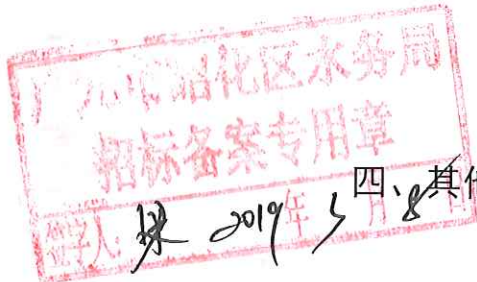 广元市昭化区水务局
招标备案专用章
签字人: 2019年5月8日
四、其他